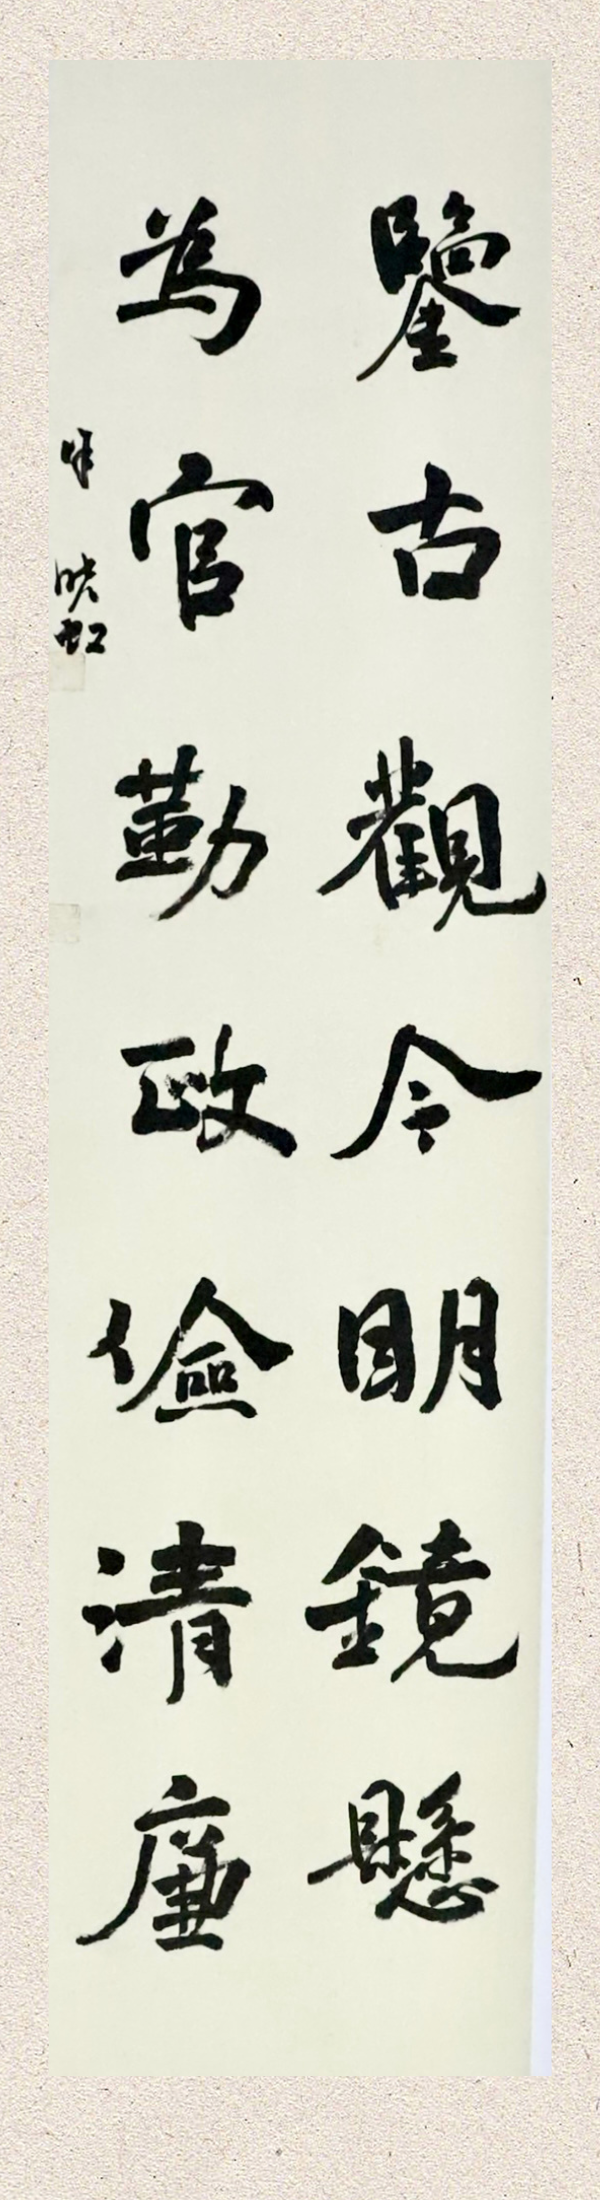 鑒古觀今明鏡懸
為官勤政儉清廉
映虹